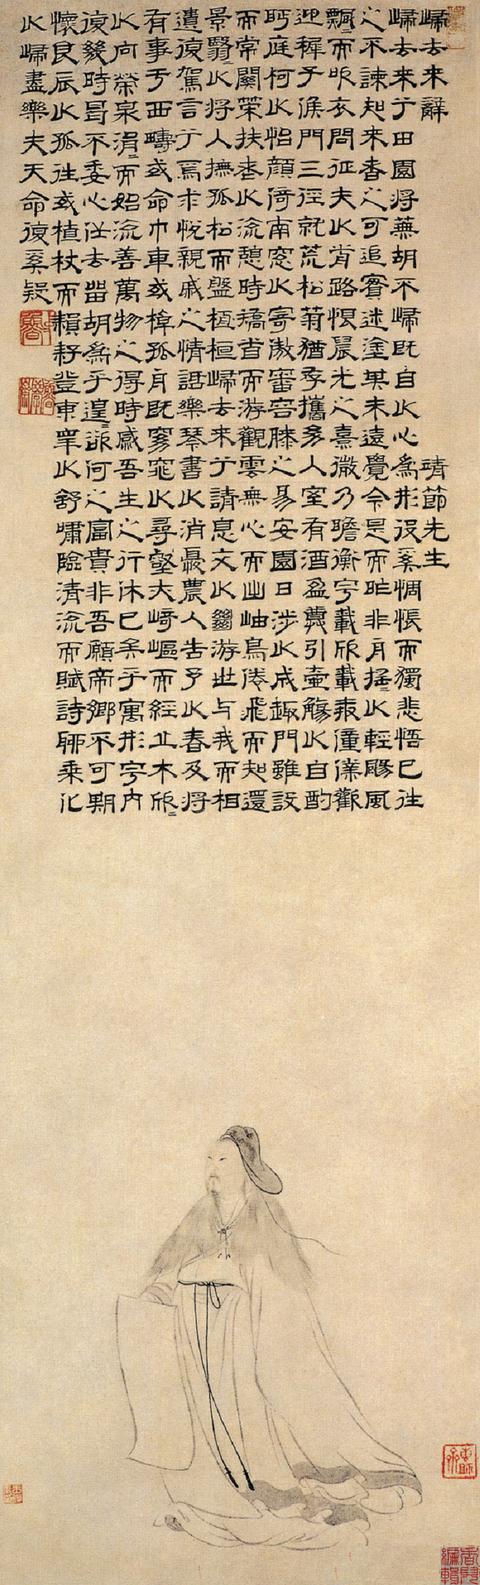 歸去來辭 靖節先生
歸去來兮田園將蕪胡不歸既自以心為形役奚惆悵而獨悲悟已往
之不諫知來者之可追實迷塗其未遠覺今是而昨非舟搖〻以輕颺風
飄〻而吹衣問征夫以前路恨晨光之熹微乃瞻衡宇載欣載奔僮僕歡
迎稚子候門三徑就荒松菊猶存攜幼入室有酒盈樽引壺觴以自酌
眄庭柯以怡顏倚南窓以寄傲審容膝之易安園日涉以成趣門雖設
而常關策扶老以流憩時矯首而游觀雲無心而出岫鳥倦飛而知還
景翳〻以將入撫孤松而盤桓歸去來兮請息交以絕游世与我而相
遺復駕言兮焉求悅親戚之情話樂琴書以消憂農人告予以春及將
有事于西疇或命巾車或棹孤舟既窈窕以尋壑亦崎嶇而經丘木欣〻
以向榮泉涓〻而始流善萬物之得時感吾生之行休已矣乎寓形宇內
復幾時曷不委心任去留胡為乎遑〻欲何之富貴非吾願帝鄉不可期
懷良辰以孤往或植杖而耘耔登東皋以舒嘯臨清流而賦詩聊乘化
以歸盡樂夫天命復奚疑